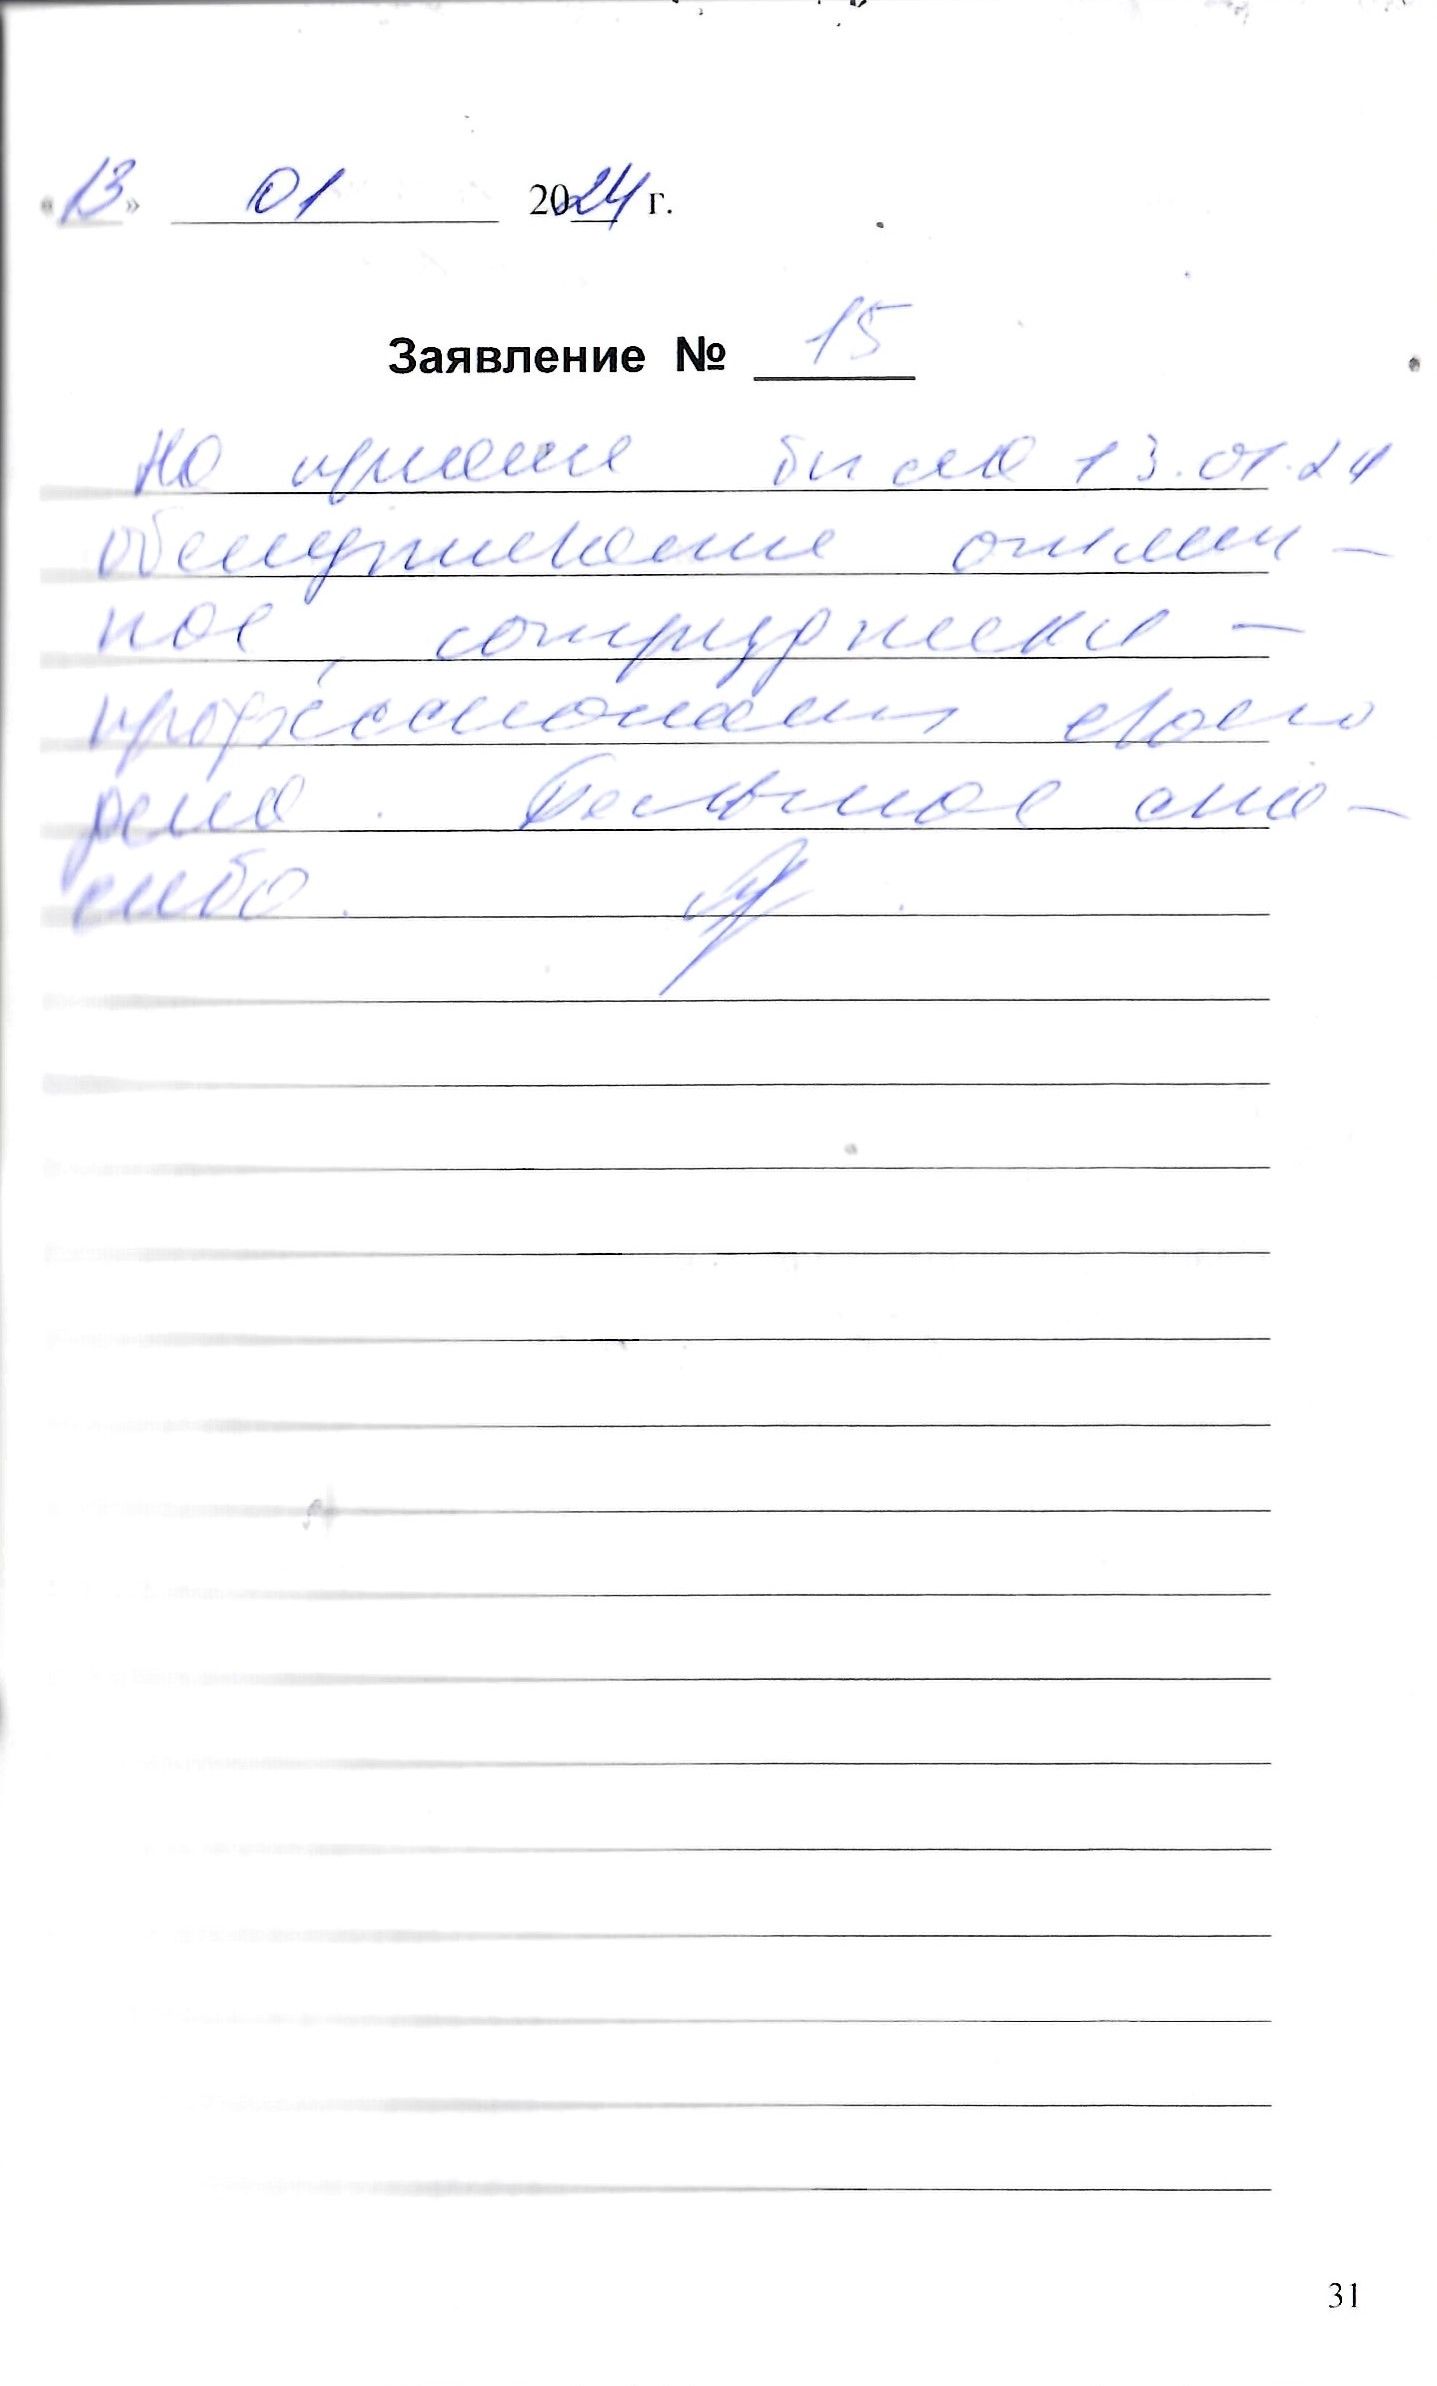 «13» 01 2024 г.
Заявление № 15
На приеме была 13.01.24
обслуживание отлич-
ное, сотрудники -
профессионалы своего
дела. Большое спа-
сибо.
31